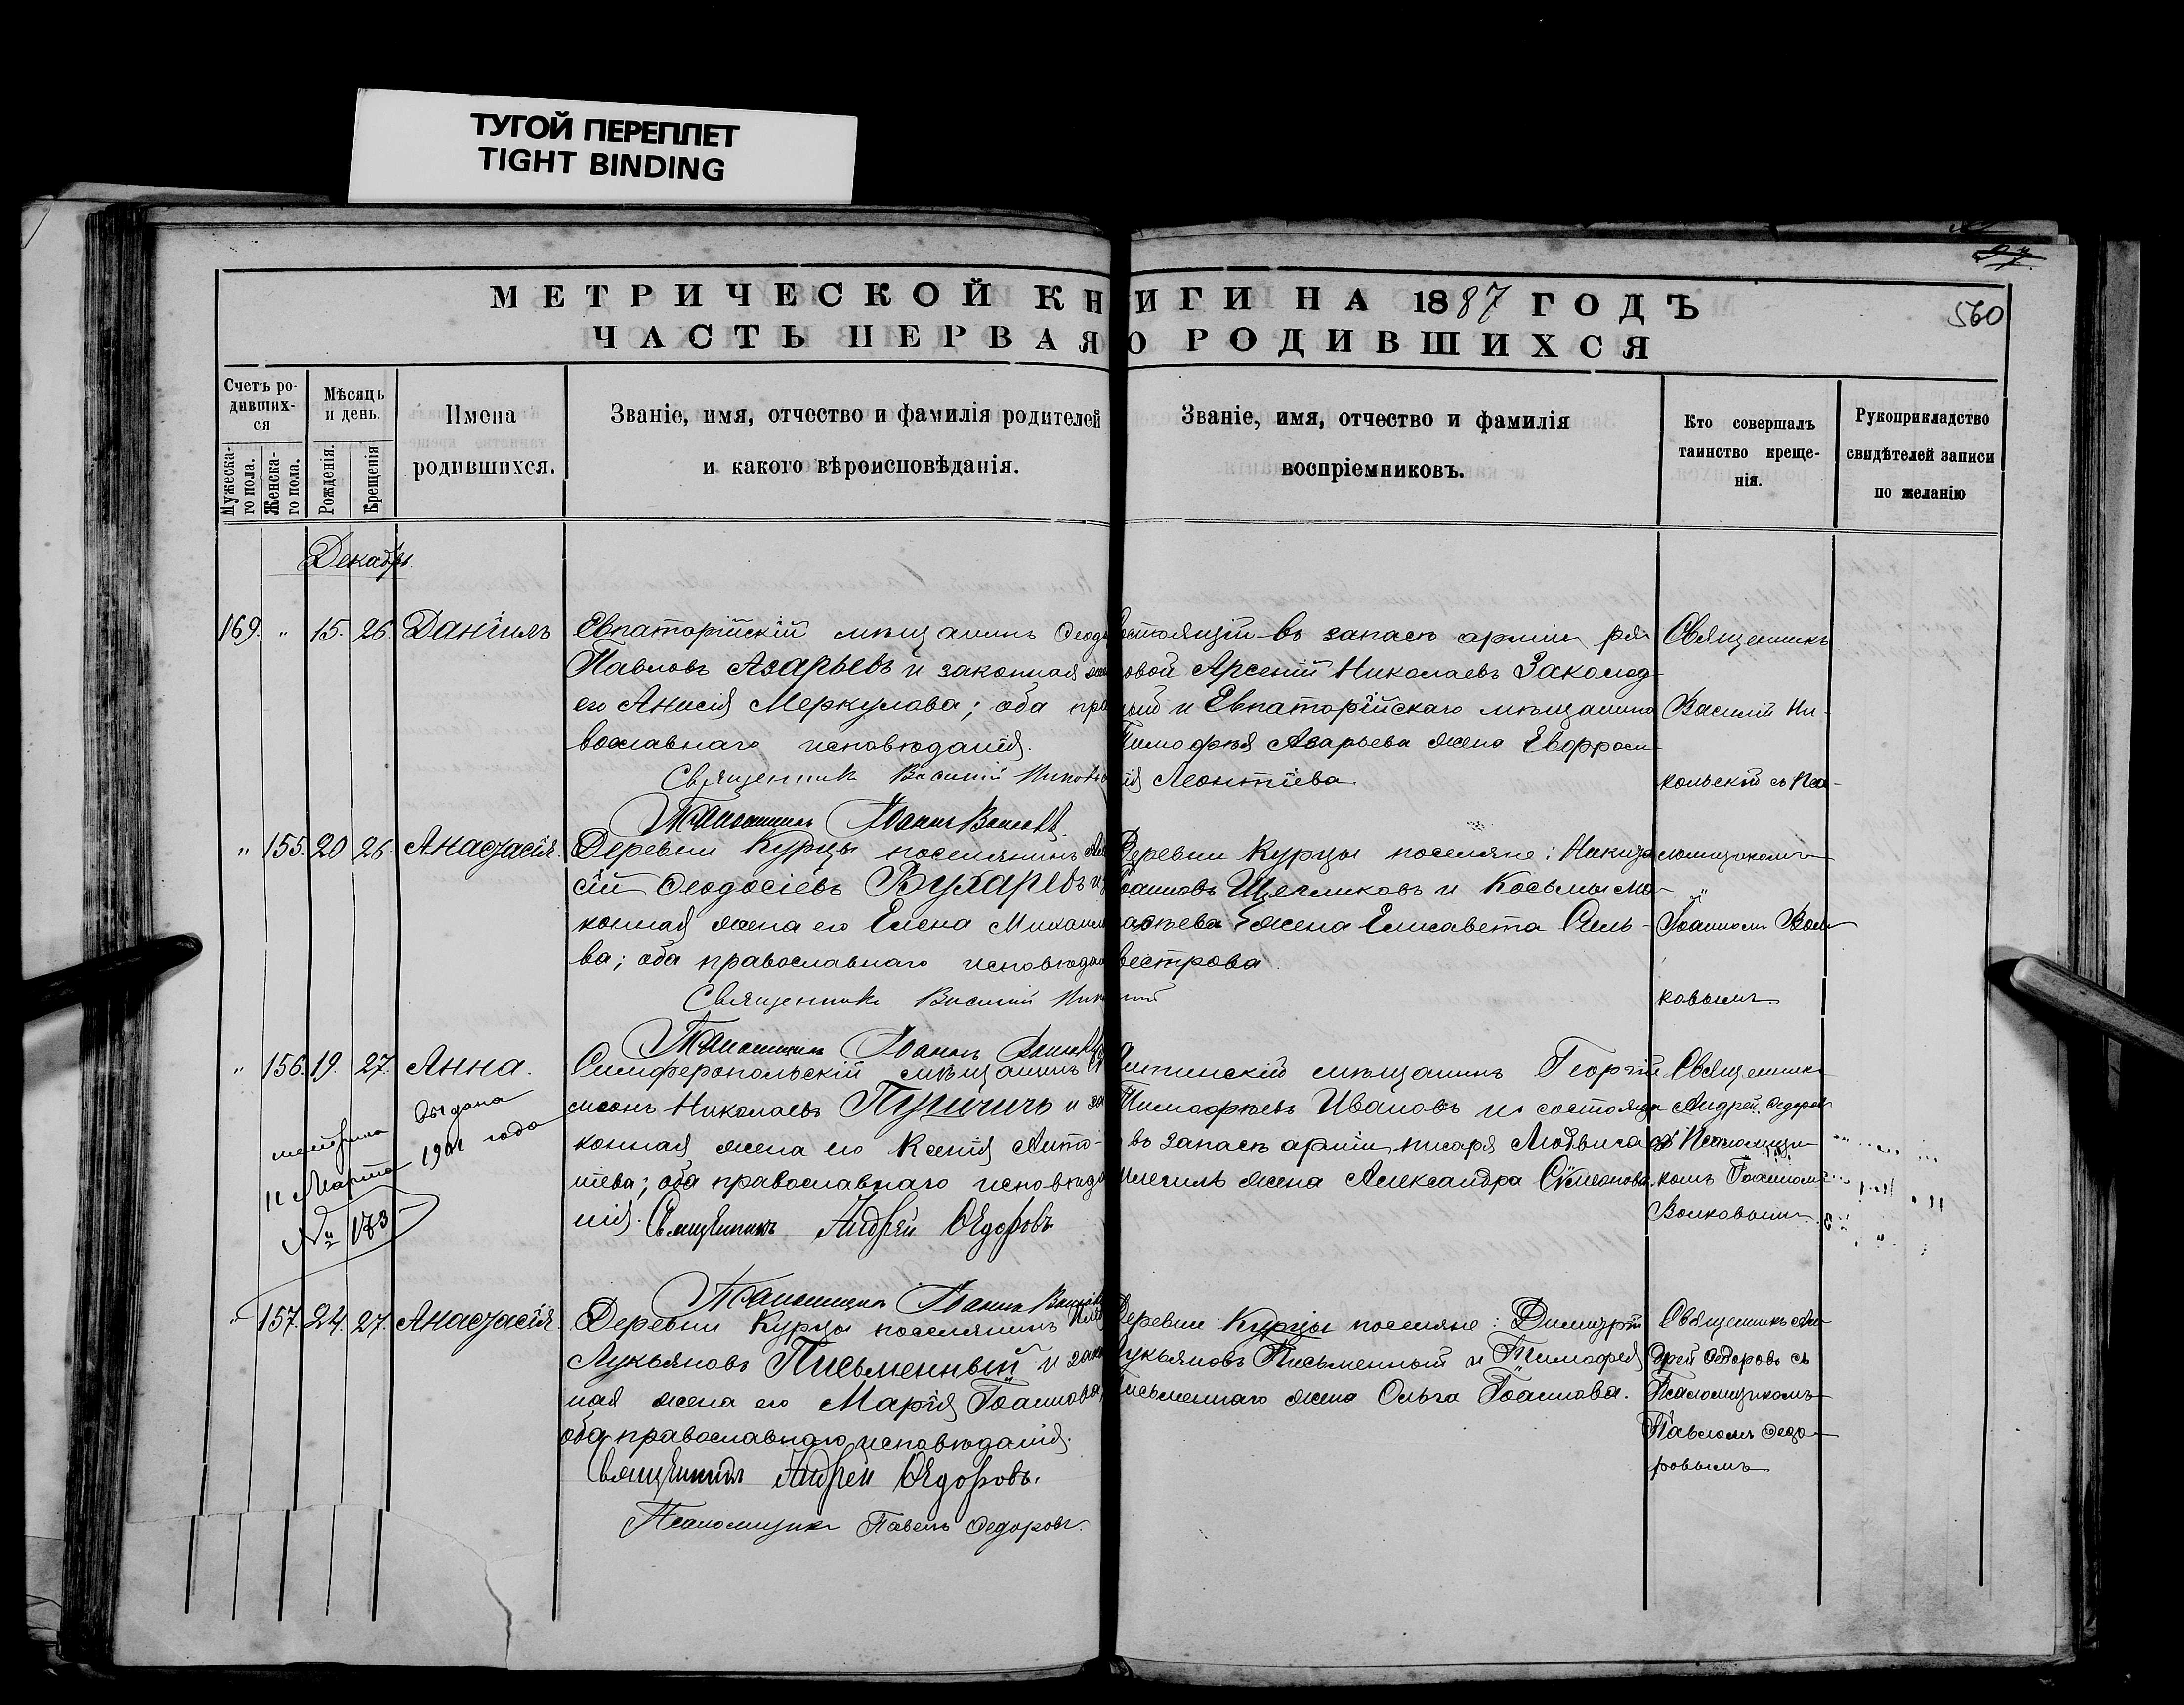 ТУГОЙ ПЕРЕПЛЕТ
TIGHT BINDING
МЕТРИЧЕСКОЙ КНИГИ НА 1887 ГОДЪ
560
ЧАСТЬ ПЕРВАЯ О РОДИВШИХСЯ
Счетъ ро-
дивших-
ся
Мужеска-
го пола.
Женска-
го пола.
Мѣсяць
и день.
Рожденія.
Крещенія
Имена
родившихся.
Званіе, имя, отчество и фамилія родителей
и какого вѣроисповѣданія.
Званіе, имя, отчество и фамилія
воспріемниковъ.
Кто совершалъ
таинство креще-
нія.
Рукоприкладство
свидѣтелей записи
по желанію
Декабрь
169. " 15. 26. Даніилъ
Евпаторійскій мѣщанинъ Ѳеод
Павловъ Азарьевъ и законная жен
его Анисія Меркулова; оба пра
вославнаго исповѣданія.
Священникъ Василій Никол
Псаломщикъ Іоаннъ Волковъ.
остоящій въ запасѣ арміи ря
овой Арсеній Николаевъ Заколод
ный и Евпаторійскаго мѣщанина
Тимофѣя Азарьева жена Евфроси-
нія Леонтіева.
Священникъ
Василій Ни-
кольскій съ Пса-
" 155. 20 26. Анастасія.
Деревни Курцы поселянинъ
сій Ѳеодосіевъ Вухаревъ и
конная жена его Елена Михаило
ва; оба православнаго исповѣдан
Священникъ Василій Никольскій
Псаломщикъ Іоаннъ Волковъ
Деревни Курцы поселяне: Никита
Іоанновъ Щегликовъ и Косьмы
жена Елисавета Силь-
вестрова.
ломщикомъ
Іоанномъ Вол-
ковымъ
" 156. 19. 27. Анна.
Выдана
метрика
11 Марта 1901 года
№ 183
Симферопольскій мѣщанинъ
меонъ Николаевъ Пуничъ и за
конная жена его Ксенія Анто-
ніева; оба православнаго исповѣда
нія. Священникъ Андрей Ѳедоровъ
Псаломщикъ Іоаннъ Волковъ
мѣщанинъ Георгій
Тимофѣевъ Ивановъ и состояща
въ запасѣ арміи писаря Людвига
жена Александра Симеонова.
Священникъ
Андрей Ѳедоров
съ Псаломщи-
комъ Іоанномъ
Волковымъ
" 157. 24. 27. Анастасія.
Деревни Курцы поселянинъ
Лукьяновъ Письменный и зако
ная жена его Марія Іоаннова,
оба православнаго исповѣданія.
Священникъ Андрей Ѳедоровъ.
Псаломщикъ Павелъ Ѳедоровъ.
Деревни Курцы поселяне: Димитрій
Лукьяновъ Письменный и Тимофея
Письменнаго жена Ольга Іоаннова.
Священникъ Ан-
дрей Ѳедоровъ съ
Псаломщикомъ
Павломъ Ѳедо-
ровымъ